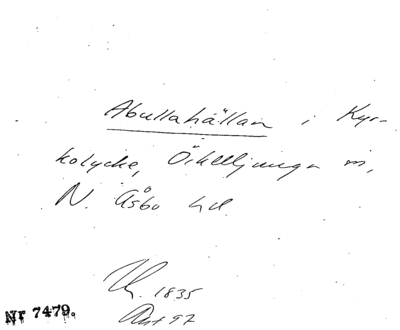 Abullahällan i Kyr-
kolycke, Örkelljunga sn,
N. Åsbo hd
1835
Avt 97
Nr 7479.